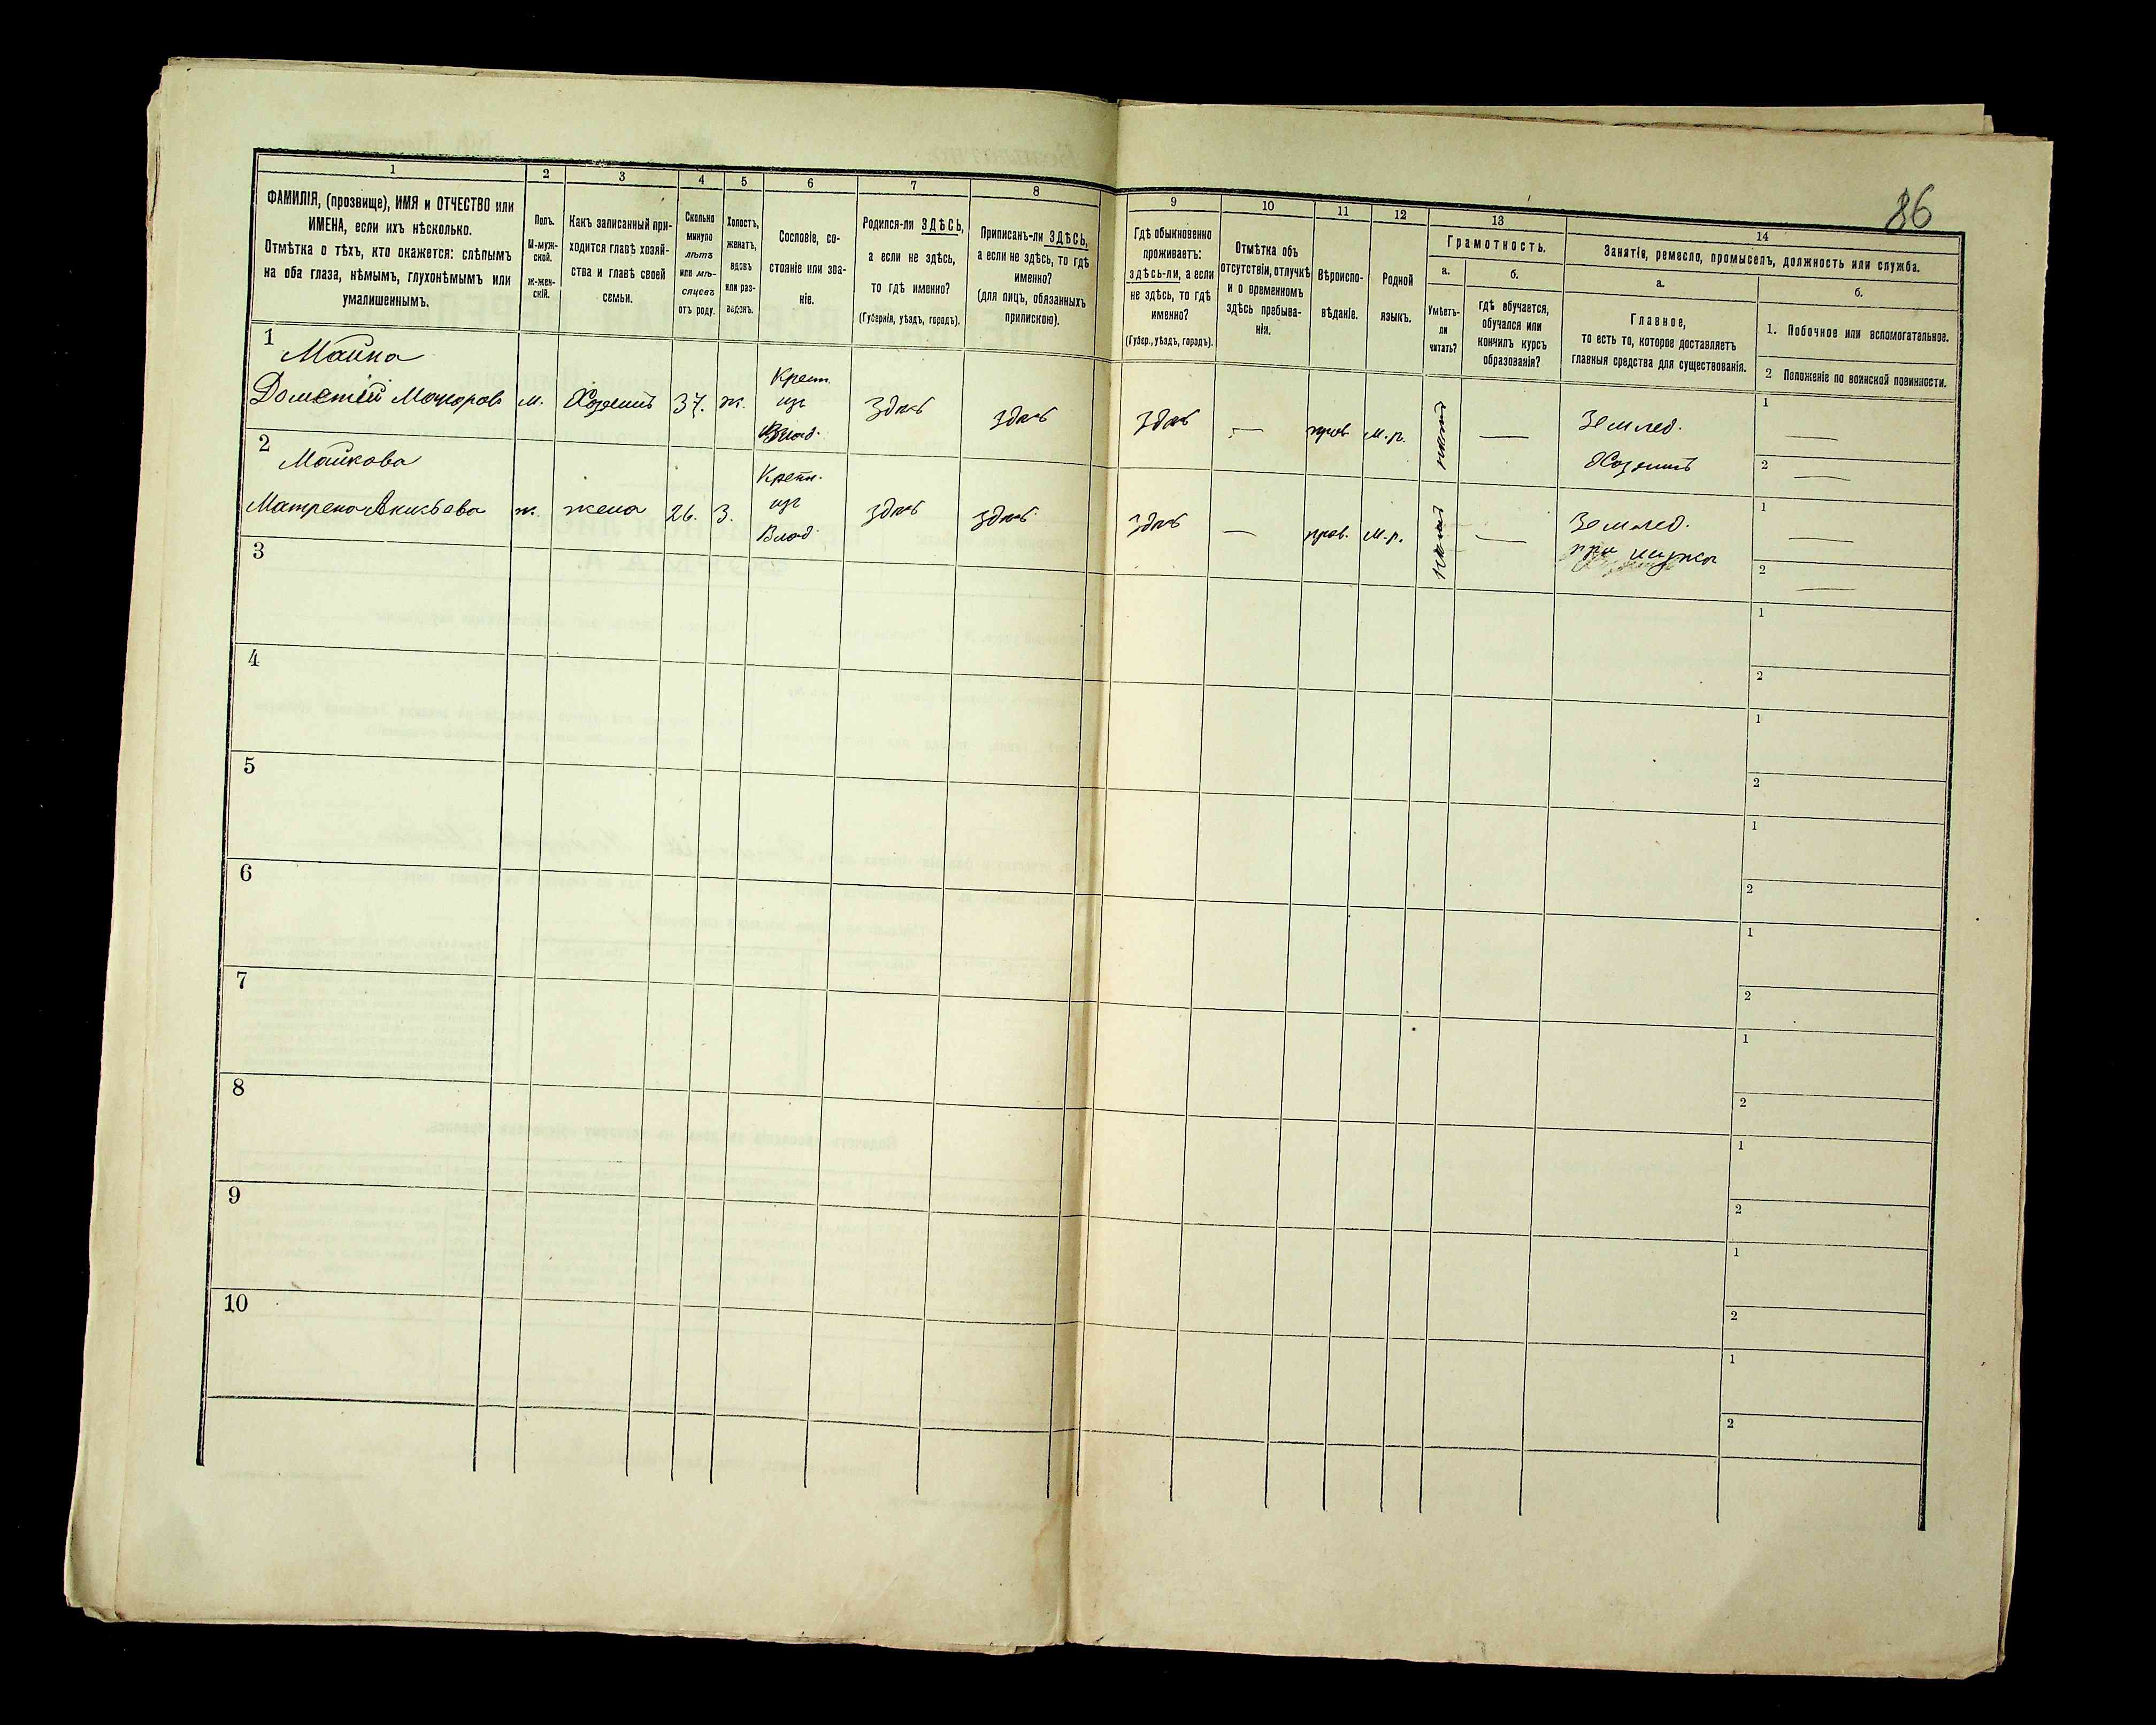 86
1
2
3
4
5
6
7
8
9
10
11
12
13
14
ФАМИЛІЯ, (прозвище), ИМЯ и ОТЧЕСТВО или
ИМЕНА, если ихъ нѣсколько.
Отмѣтка о тѣхъ, кто окажется: слѣпымъ
на оба глаза, нѣмымъ, глухонѣмымъ или
умалишеннымъ.
Полъ.
М-муж-
ской.
Ж-жен-
скій.
Какъ записанный при-
ходится главѣ хозяй-
ства и главѣ своей
семьи.
Сколько
минуло
лѣтъ
или мѣ-
сяцевъ
отъ роду.
Холостъ,
женатъ,
вдовъ
или раз-
веденъ.
Сословіе, со-
стояніе или зва-
ніе.
Родился-ли ЗДѢСЬ,
а если не здѣсь,
то гдѣ именно?
(Губернія, уѣздъ, городъ).
Приписанъ-ли ЗДѢСЬ,
а если не здѣсь, то гдѣ
именно?
(для лицъ, обязанныхъ
припискою).
Гдѣ обыкновенно
проживаетъ:
здѣсь-ли, а если
не здѣсь, то гдѣ
именно?
(Губер., уѣздъ, городъ).
Отмѣтка объ
отсутствіи, отлучкѣ
и о временномъ
здѣсь пребыва-
ніи.
Вѣроиспо-
вѣданіе.
Родной
языкъ.
Грамотность.
а.
Умѣетъ-
ли
читать?
б.
гдѣ обучается,
обучался или
кончилъ курсъ
образованія?
Занятіе, ремесло, промыселъ, должность или служба.
а.
Главное,
то есть то, которое доставляетъ
главныя средства для существованія.
б.
1. Побочное или вспомогательное.
2 Положеніе по воинской повинности.
1
Майка
Дометій
м.
Хозяинъ
37.
ж.
Крест.
изъ
Влад.
здѣсь
здѣсь
здѣсь
—
прав.
м.р.
нѣтъ
—
Землед.
Хозяинъ
1
—
2
—
2
Майкова
Матрена
ж.
жена
26.
з.
Крест.
изъ
Влад.
здѣсь
здѣсь
здѣсь
—
прав.
м.р.
нѣтъ
—
Землед.
при мужѣ
1
—
2
—
3
1
2
4
1
2
5
1
2
6
1
2
7
1
2
8
1
2
9
1
2
10
1
2